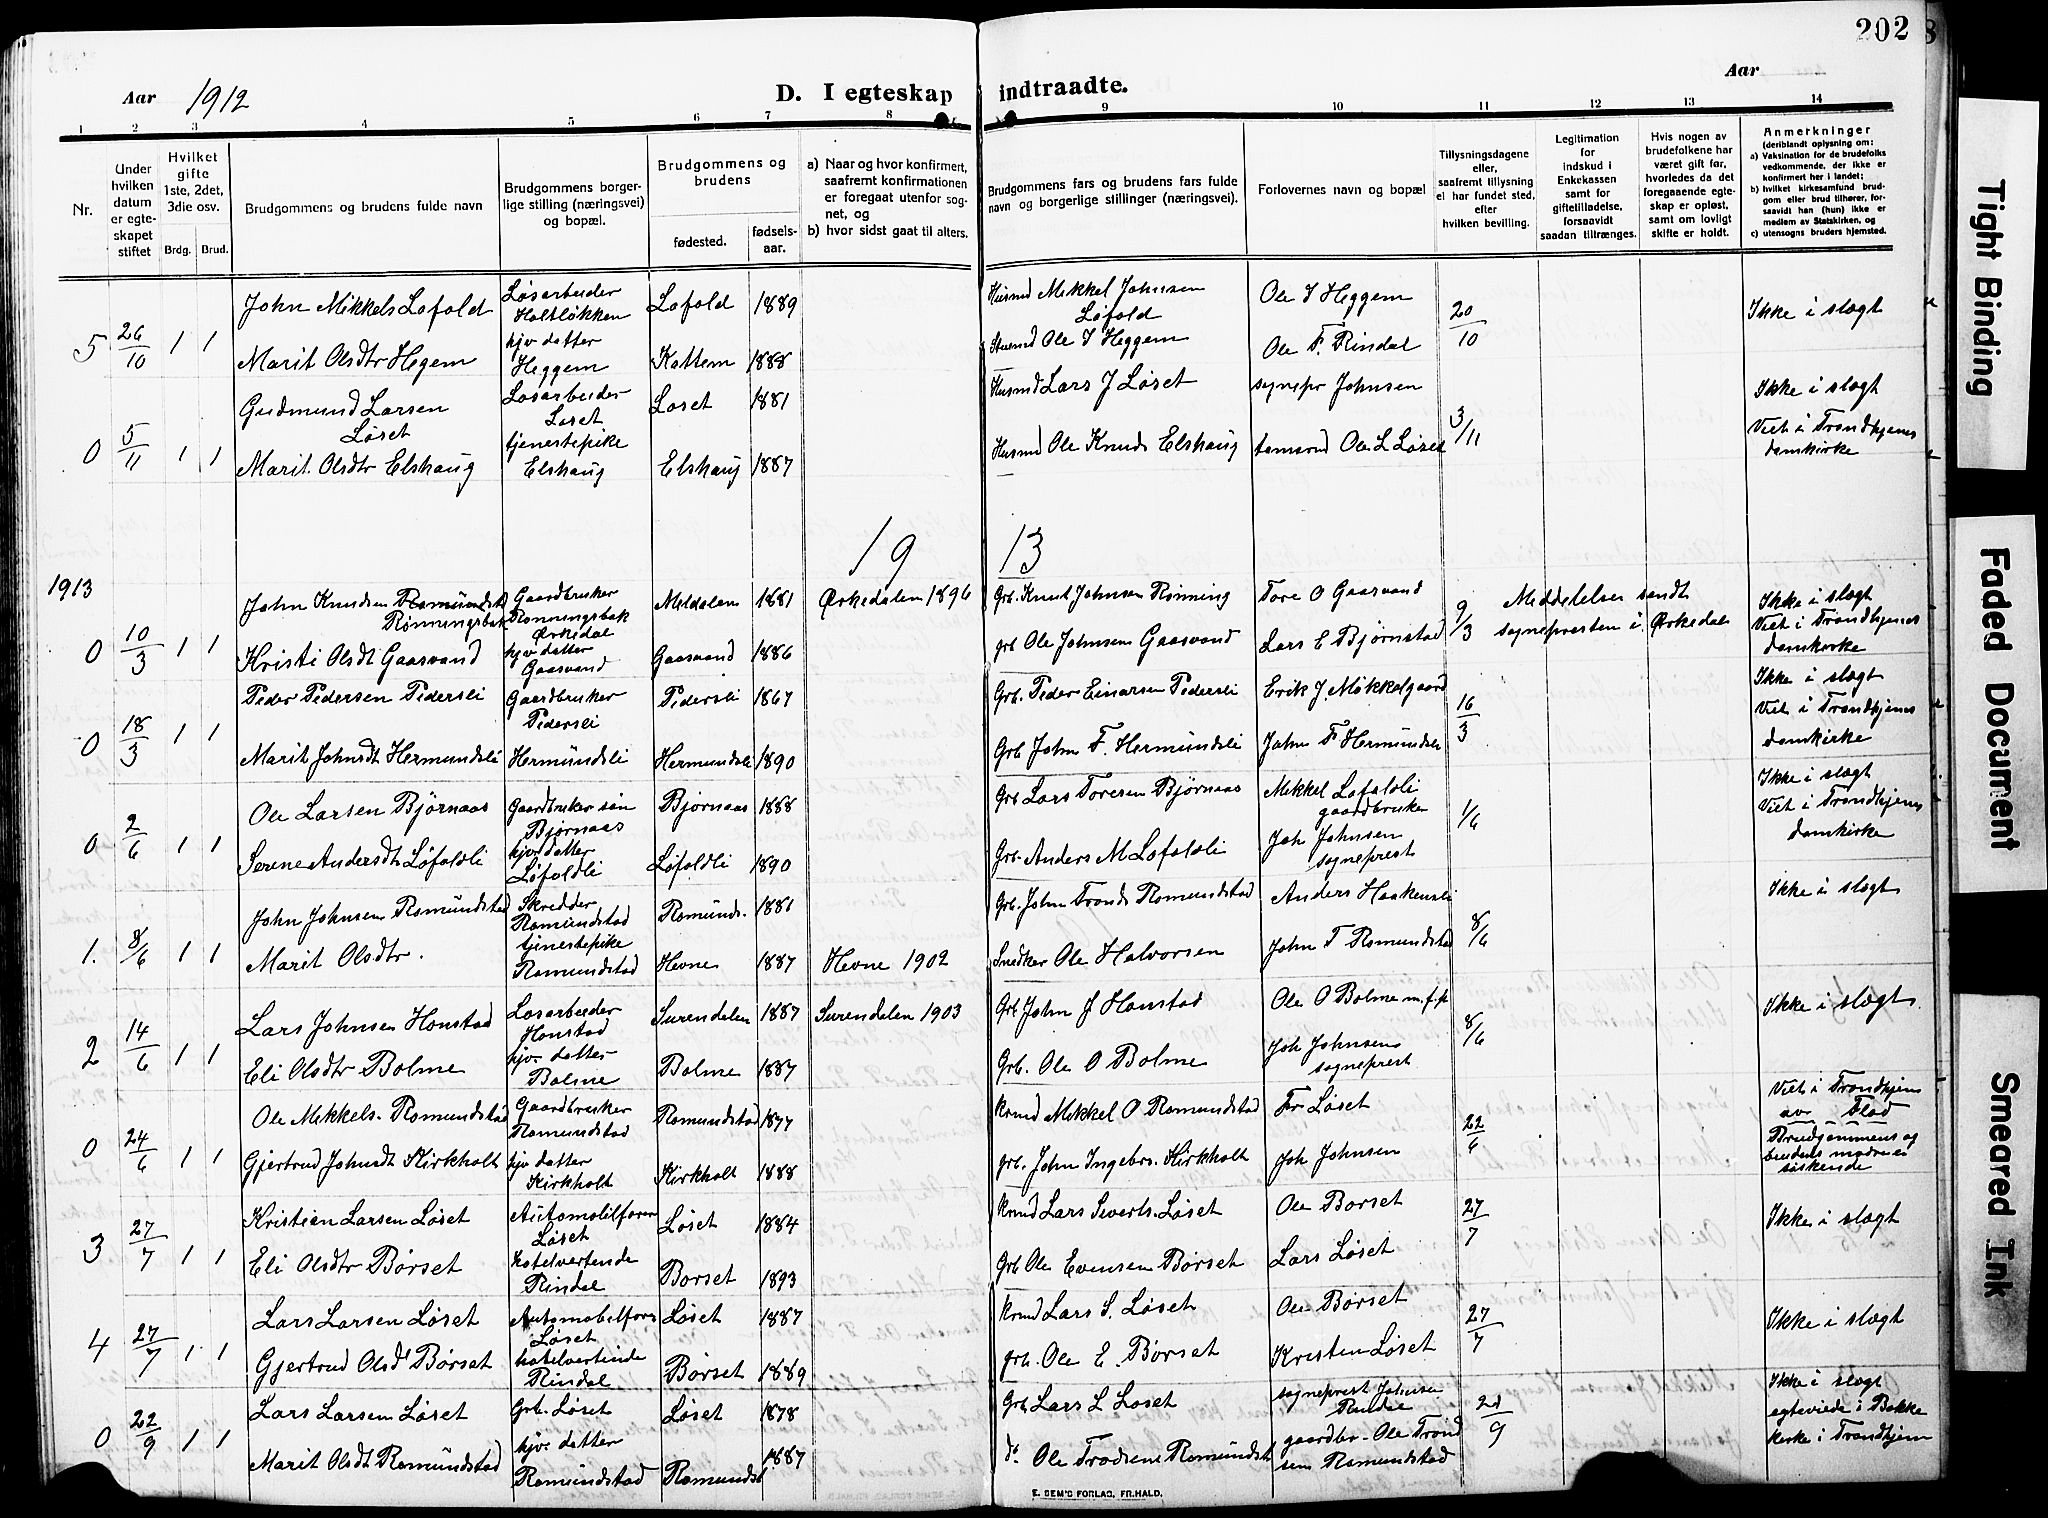 202
8
Aar 1912
D. I egteskap indtraadte.
Aar
1 2 3 4 5 6 7 8 9 10 11 12 13 14
Nr.
Under hvilken datum er egteskapet stiftet
Hvilket gifte 1ste, 2det, 3die osv.
Brdg. Brud.
Brudgommens og brudens fulde navn
Brudgommens borgerlige stilling (næringsvei) og bopæl.
Brudgommens og brudens
fødested.
fødselsaar.
a) Naar og hvor konfirmert, saafremt konfirmationen er foregaat utenfor sognet, og
b) hvor sidst gaat til alters.
Brudgommens fars og brudens fars fulde navn og borgerlige stillinger (næringsvei).
Forlovernes navn og bopæl
Tillysningsdagene eller, saafremt tillysning ei har fundet sted, efter hvilken bevilling.
Legitimation for indskud i Enkekassen samt for giftetilladelse, forsaavidt saadan tiltrænges.
Hvis nogen av brudefolkene har været gift før, hvorledes da det foregaaende egteskap er opløst, samt om lovligt skifte er holdt.
Anmerkninger (deriblandt oplysning om:
a) Vaksination for de brudefolks vedkommende, der ikke er konfirmert her i landet;
b) hvilket kirkesamfund brudgom eller brud tilhører, forsaavidt han (hun) ikke er medlem av Statskirken, og
c) utensogns bruders hjemsted.
5 26/10 1 1 John Mikkels Lofold Løsarbeider Holtløkken Lofold 1889 Husmd Mikkel Johnsen Løfold Ole I Heggem 20/10 Ikke i slægt
Marit Olsdtr Hegem hjv datter Heggem Kattem 1888 Ole I Heggem Ole F. Rindal
0 5/11 1 1 Gudmund Larsen Løset Løsarbeider Løset Løset 1881 Husmd Lars J Løset sognepr Johnsen 3/11 Ikke i slægt Viet i Trondhjems domkirke
Marit Olsdtr Elshaug tjenestepike Elshaug Elshaug 1887 Husmd Ole Knuds Elshaug Ole L Løset
1913
1913
0 10/3 1 1 John Knudsen Romundstad Rønningsbak Gaardbruker Rønningsbak Ørkedal Meldalen 1881 Ørkedalen 1896 Grb. Knut Johnsen Rønning Tore O Gaasvand 9/3 Meddelelse sendt sognepresten i Ørkedal Ikke i slægt Viet i Trondhjems domkirke
Kristi Olsdt Gaasvand hjv datter Gaasvand Gaasvand 1886 grb Ole Johnsen Gaasvand Lars E Bjørnstad
0 18/3 1 1 Peder Pedersen Pedersli Gaardbruker Pedersli Pedersli 1867 Grb. Peder Einarsen Pedersli Erik J. Mikkelgaard 16/3 Ikke i slægt Viet i Trondhjems domkirke
Marit Johnsdt Hermundsli Hermundsli Hermundsli 1890 Grb John F. Hermundsli John F Hermundsli
0 2/6 1 1 Ole Larsen Bjørnaas Gaardbruker søn Bjørnaas Bjørnaas 1888 Grb Lars Toresen Bjørnaas Mikkel Lofaldli gaardbruker 1/6 Ikke i slægt Viet i Trondhjems domkirke
Serene Andersdt Løfaldli hjv. datter Løfaldli Løfaldli 1890 Grb. Anders M Lofaldli Joh Johnsen sogneprest
1. 8/6 1 1 John Johnsen Romundstad Skredder Romundstad Romunds. 1881 Grb. John Tronds Romundstad Anders Haakensli 8/6 Ikke i slægt
Marit Olsdtr. tjenestepike Romundstad Hevne 1887 Hevne 1902 Snedker Ole Halvorsen John T Romundstad
2 14/6 1 1 Lars Johnsen Honstad Løsarbeider Honstad Surendalen 1887 Surendalen 1903 Grb John J Honstad Ole O Bolme m.f.p 8/6 Ikke i slægt
Eli Olsdtr Bolme hjv. datter Bolme Bolme 1887 Grb. Ole O Bolme Joh Johnsen sogneprest
0 24/6 1 1 Ole Mikkels. Romundstad Gaardbruker Romundstad Romundstad 1877 Mikkel O Romundstad Fr Løset 22/6 Viet i Trondhjem av Flod Brudgommens og brudens mødre er søskende
Gjertrud Johnsdt Kirkholt hjv datter Kirkholt Kirkholt 1888 grb. John Ingebr. Kirkholt Joh Johnsen
3 27/7 1 1 Kristian Larsen Løset Automobilfører Løset Løset 1884 Lars Siverts. Løset Ole Børset 27/7 Ikke i slægt
Eli Olsdtr Børset hotelvertinde Rindal Børset 1893 Grb Ole Evensen Børset Lars Løset
4 27/7 1 1 Lars Larsen Løset Automobilfører Løset Løset 1887 Lars S. Løset Ole Børset 27/7 Ikke i slægt
Gjertrud Olsd Børset hotelvertinde Rindal Børset 1889 grb. Ole E. Børset Kristen Løset
0 22/9 1 1 Lars Larsen Løset Grb. Løset Løset 1878 Grb Lars L Løset sogneprest Johnsen Rindal 21/9 Ikke i slægt egteviede i Bakke kirke i Trondhjem
Marit Olsdt Romundstad hjv. datter Romundstad Romundst 1887 do Ole Trodsens Romundst gaardbr. Ole Trondsen Romundstad
E. SEM'S FORLAG, FR.HALD.
Tight Binding
Faded Document
Smeared Ink